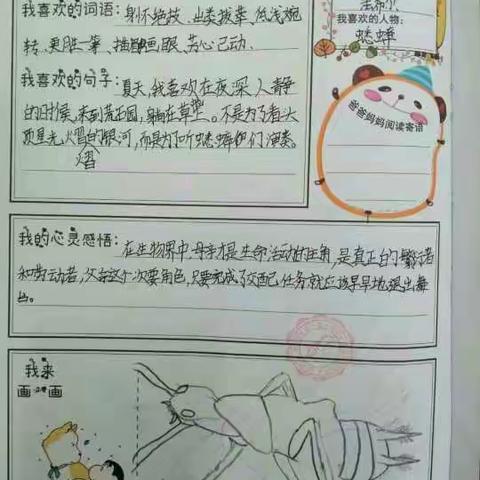 我喜欢的词语：身怀绝技、出类拔萃、低浅婉
转、更胜一筹、插翩画眼、芳心已动。
法布尔
我喜欢的人物：
蟋蟀
我喜欢的句子：夏天，我喜欢在夜深人静
的时候，来到荒石园，躺在草坪上。不是为了看头
顶星光熠熠的银河，而是为了听蟋蟀们演奏。
熠
爸爸妈妈阅读寄语
我的心灵感悟：在生物界中，母亲才是生命活动的主角，是真正的繁衍者
和劳动者，父亲这个次要角色，只要完成了交配任务就应该早早地退出舞
台。
我来
画一画